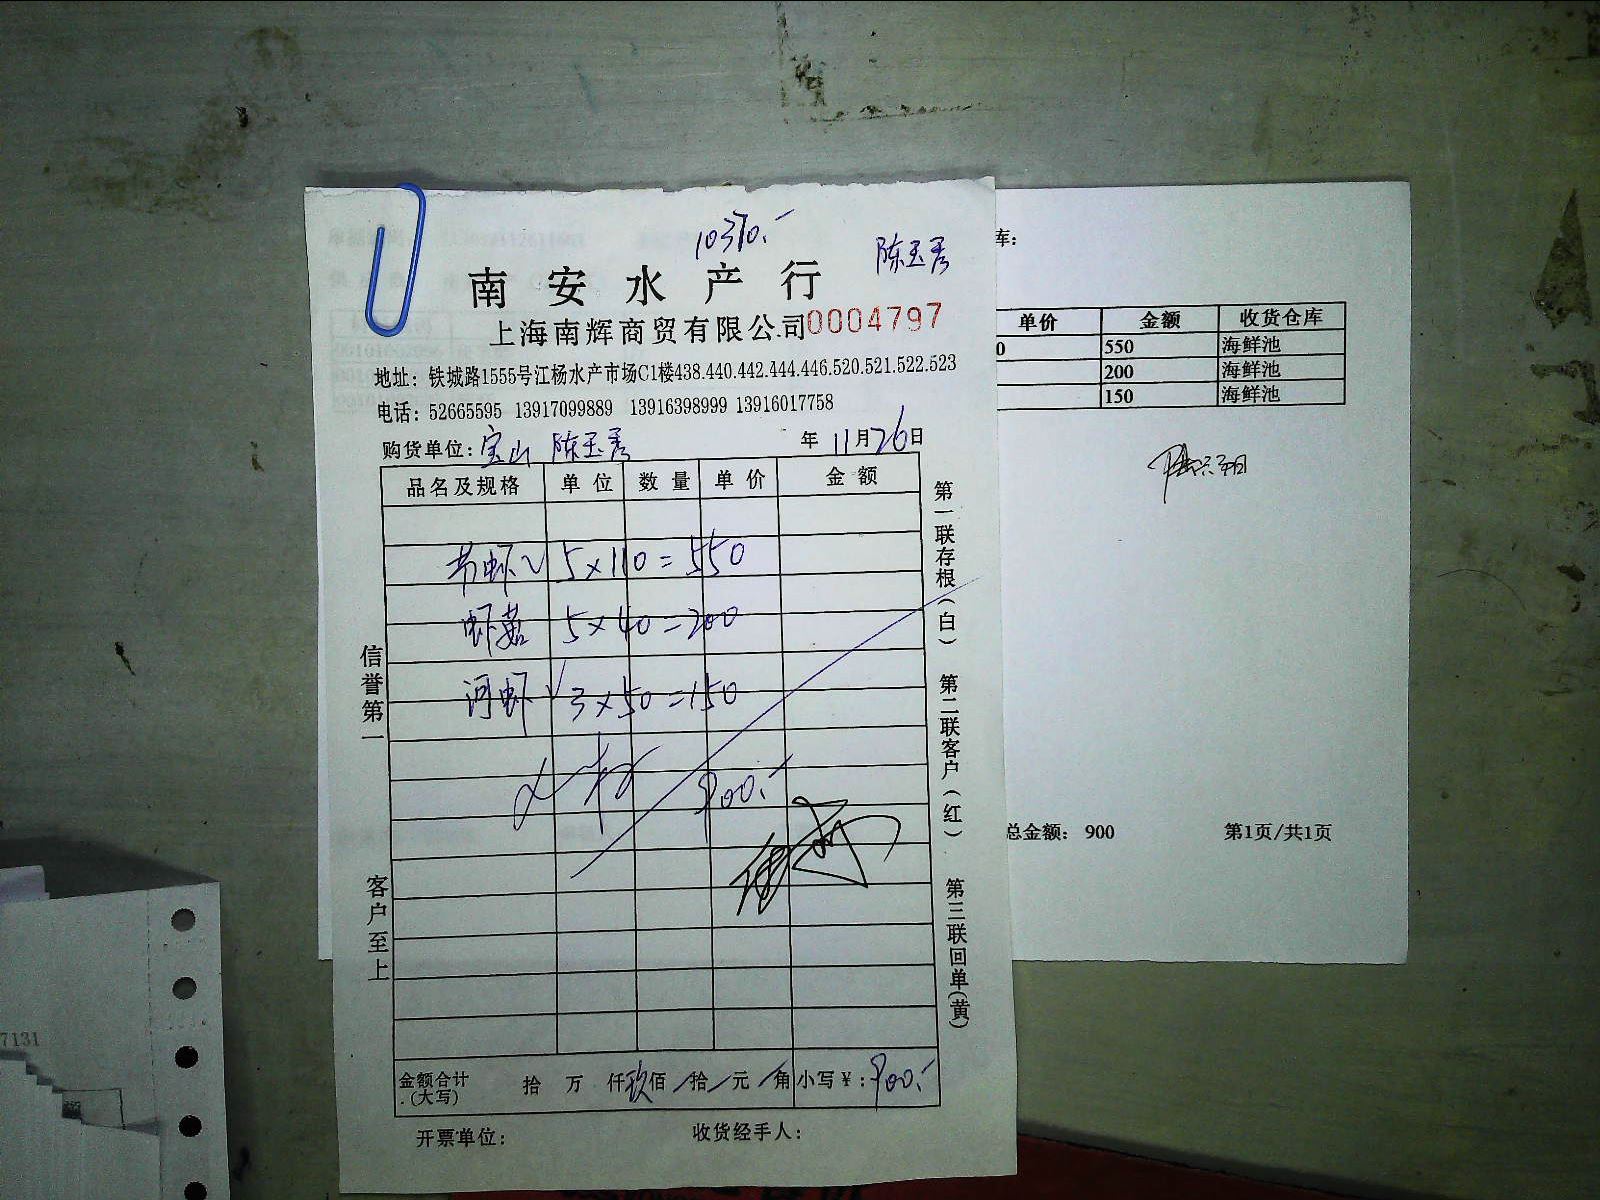 10370.-
陈玉秀
南安水产行
上海南辉商贸有限公司 0004797
地址：铁城路1555号江杨水产市场C1楼438.440.442.444.446.520.521.522.523
电话：52665595 13917099889 13916398999 13916017758
购货单位：宝山 陈玉秀 年 11月26日
品名及规格 单位 数量 单价 金额
节虾√ 5×110=550
虾菇 5×40=200
河虾√ 3×50=150
900.-
信誉第一
客户至上
第一联存根(白) 第二联客户(红) 第三联回单(黄)
金额合计(大写) 拾 万 仟玖佰/拾/元/角 小写￥：900.-
开票单位： 收货经手人：
库：
单价 金额 收货仓库
0 550 海鲜池
200 海鲜池
150 海鲜池
总金额： 900 第1页/共1页
7131